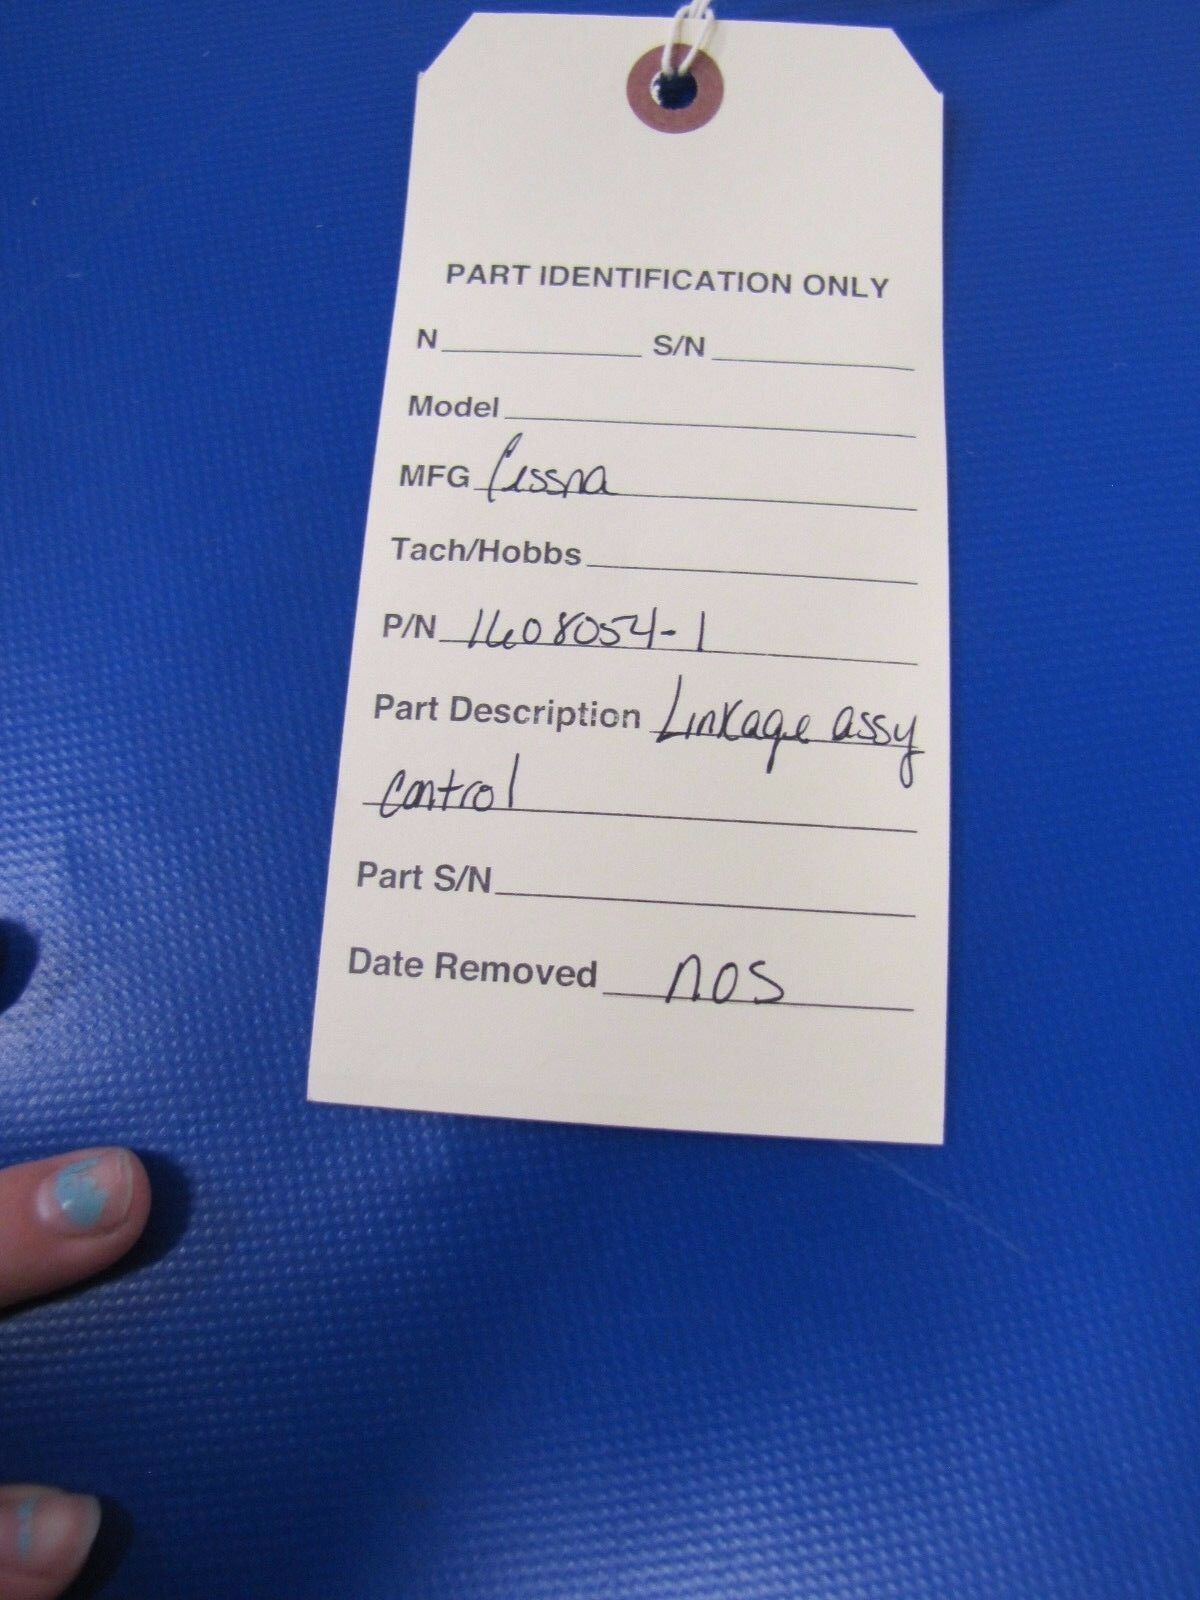 PART IDENTIFICATION ONLY
N S/N
Model
MFG Cessna
Tach/Hobbs
P/N 1608054-1
Part Description Linkage assy
control
Part S/N
Date Removed NOS